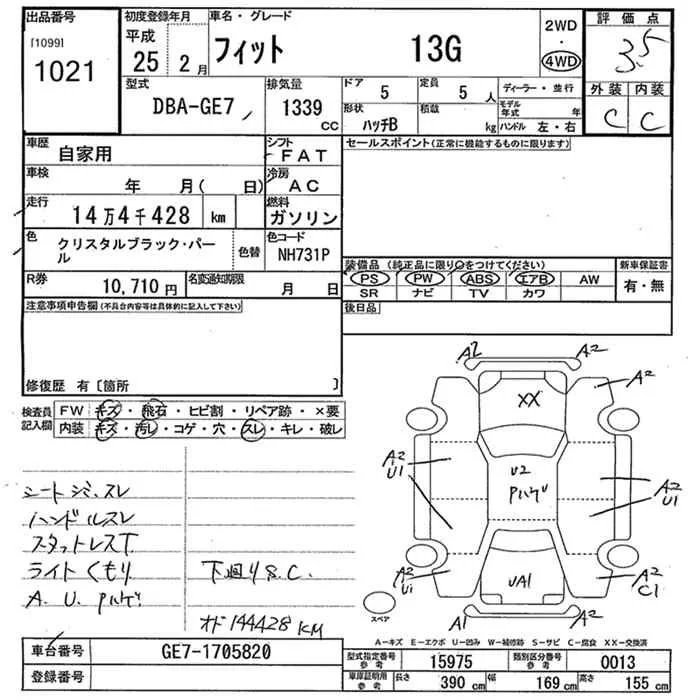 出品番号
[1099]
1021
初度登録年月
平成
25 2月
車名・グレード
フィット 13G
2WD
・
4WD
評価点
3.5
外装 内装
C C
型式
DBA-GE7
排気量
1339
CC
ドア 5
定員 5人
形状 ハッチB
積載 kg
ディーラー・並行
モデル年式 年
ハンドル 左・右
車歴
自家用
シフト
FAT
車検
年 月( 日)
冷房
AC
走行
14万4千428 km
燃料
ガソリン
色
クリスタルブラック・パール
色替
色コード
NH731P
R券
10,710円
名変通知期限
月 日
セールスポイント(正常に機能するものに限ります)
装備品 (純正品に限り〇をつけてください)
PS PW ABS エアB AW
SR ナビ TV カワ
新車保証書
有・無
後日品
注意事項申告欄(不具合内容等は具体的に記入して下さい)
修復歴 有〔箇所 〕
検査員
記入欄
FW キズ・飛石・ヒビ割・リペア跡・×要
内装 キズ・汚レ・コゲ・穴・スレ・キレ・破レ
シートジミ、スレ
ハンドルスレ
スタットレスT
ライトくもり
A.U.Pハゲ
下廻りS.C.
オド144428KM
A2 A2
A2
XX
A2
U1
U2
Pハゲ
A2
U1
A2
U1
UA1
A2
C1
A1 A2
スペア
A-キズ E-エクボ U-凹み W-補修跡 S-サビ C-腐食 XX-交換済
車台番号
GE7-1705820
登録番号
型式指定番号
参考
15975
類別区分番号
参考
0013
車庫証明用
参考
長さ 390 cm
幅 169 cm
高さ 155 cm